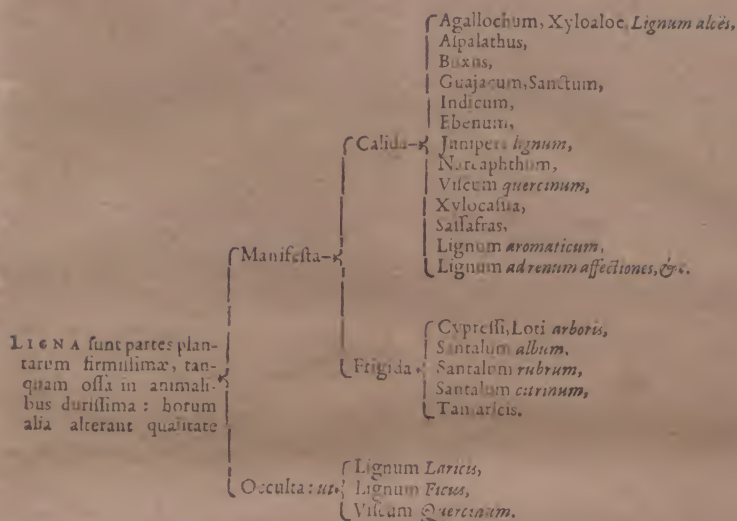 LIGNA ſunt partes plan-
tarum firmiſſimæ, tan-
quam oſſa in animali-
bus duriſſima : horum
alia alterant qualitate
Manifeſta
Calida
Agallochum, Xyloaloe, Lignum aloës,
Aſpalathus,
Buxus,
Guajacum, Sanctum,
Indicum,
Ebenum,
Juniperi lignum,
Narcaphthum,
Viſcum quercinum,
Xylocaſſia,
Saſſafras,
Lignum aromaticum,
Lignum ad renum affectiones, &c.
Frigida
Cypreſſi, Loti arboris,
Santalum album,
Santalum rubrum,
Santalum citrinum,
Tamaricis.
Occulta : ut
Lignum Laricis,
Lignum Ficus,
Viſcum Quercinum.